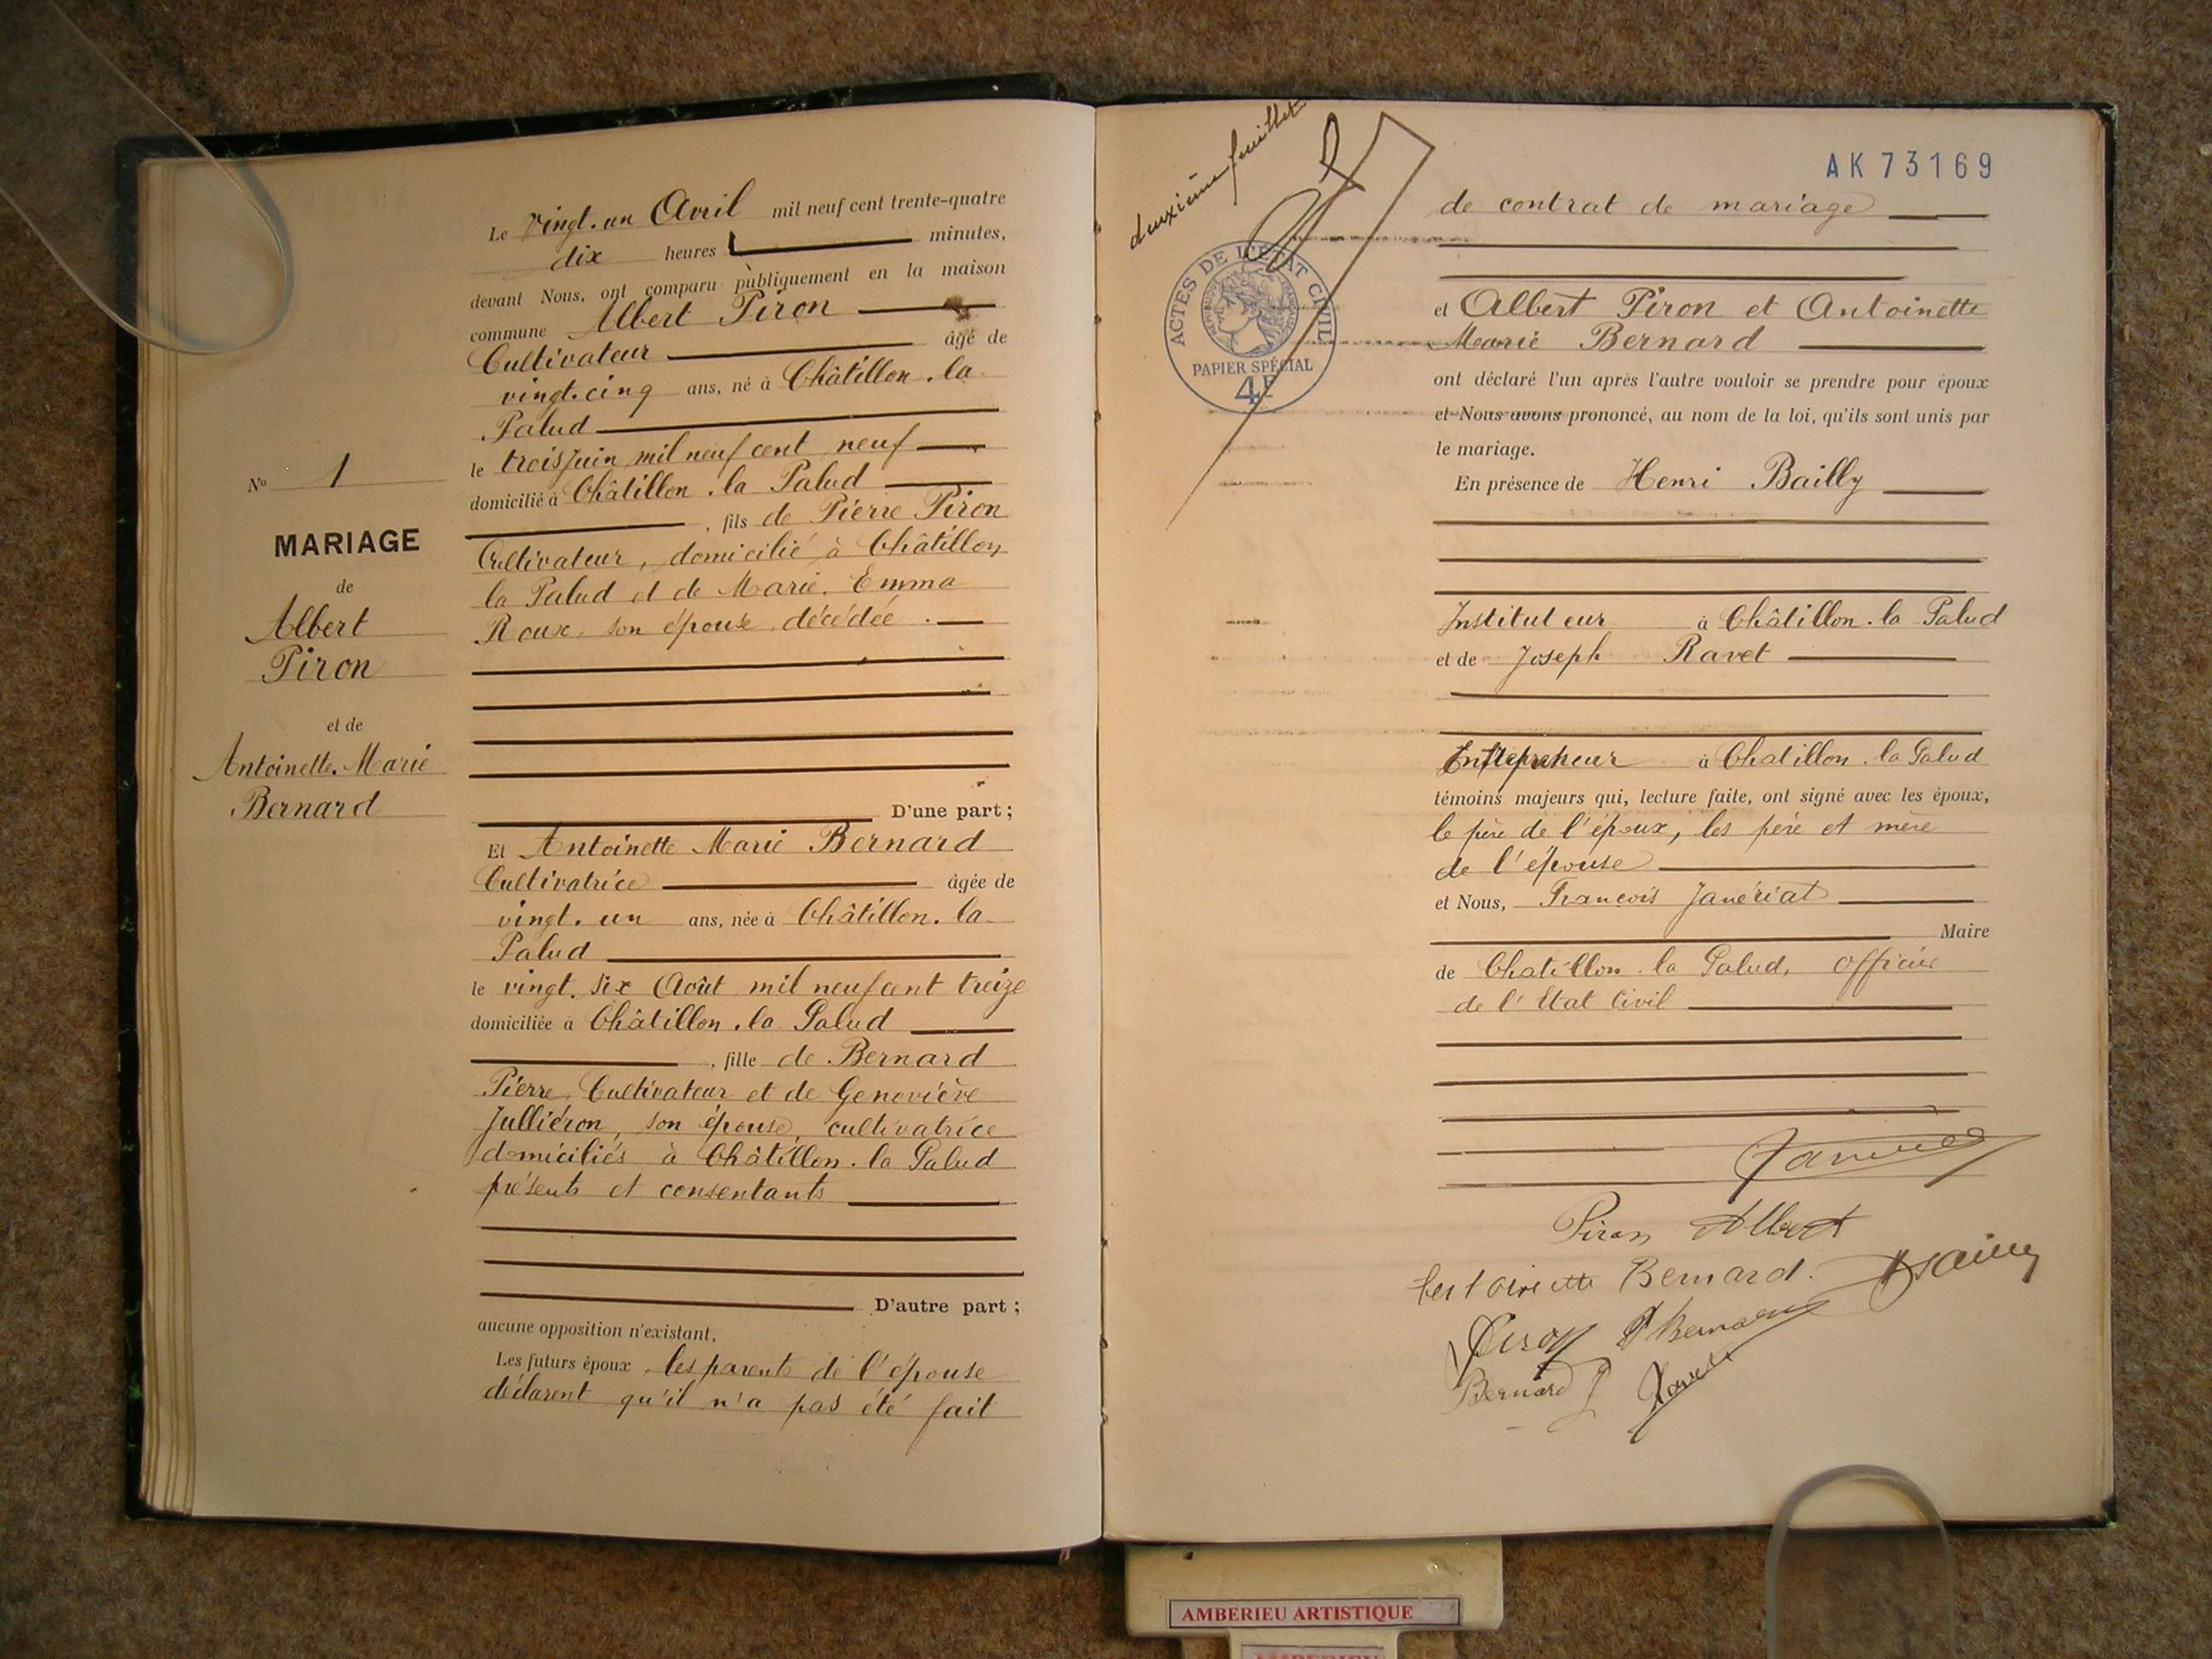 Le vingt-un Avril mil neuf cent trente-quatre
dix heures minutes,
devant Nous, ont comparu publiquement en la maison
commune Albert Piron
Cultivateur âgé de
vingt-cinq ans, né à Châtillon-la-
Palud
le trois Juin mil neuf cent neuf
domicilié à Châtillon-la Palud
, fils de Pierre Piron
Cultivateur, domicilié à Châtillon
la Palud et de Marie-Emma
Roux, son épouse, décédée.
D'une part;
No 1
MARIAGE
de
Albert
Piron
et de
Antoinette-Marie
Bernard
Et Antoinette Marie Bernard
Cultivatrice âgée de
vingt-un ans, née à Châtillon-la-
Palud
le vingt-six Août mil neuf cent treize
domiciliée à Châtillon-la Palud
, fille de Bernard
Pierre, Cultivateur et de Geneviève
Julliéron, son épouse, cultivatrice
domiciliés à Châtillon-la Palud
présents et consentants
D'autre part;
aucune opposition n'existant,
Les futurs époux, les parents de l'épouse
déclarent qu'il n'a pas été fait
deuxième feuillet
AK 73169
ACTES DE L'ETAT CIVIL
REPUBLIQUE FRANÇAISE
PAPIER SPÉCIAL
4F
de contrat de mariage
et Albert Piron et Antoinette
Marie Bernard
ont déclaré l'un après l'autre vouloir se prendre pour époux
et Nous avons prononcé, au nom de la loi, qu'ils sont unis par
le mariage.
En présence de Henri Bailly
Instituteur à Châtillon-la Palud
et de Joseph Ravet
Entrepreneur à Chatillon-la Palud
témoins majeurs qui, lecture faite, ont signé avec les époux,
le père de l'époux, les père et mère
de l'épouse
et Nous, François Janériat
Maire
de Chatillon-la Palud, officier
de l'Etat Civil
Piron Albert
Antoinette Bernard. Bailly
Piron Bernard
Bernard P Ravet
AMBERIEU ARTISTIQUE
AMBERIEU